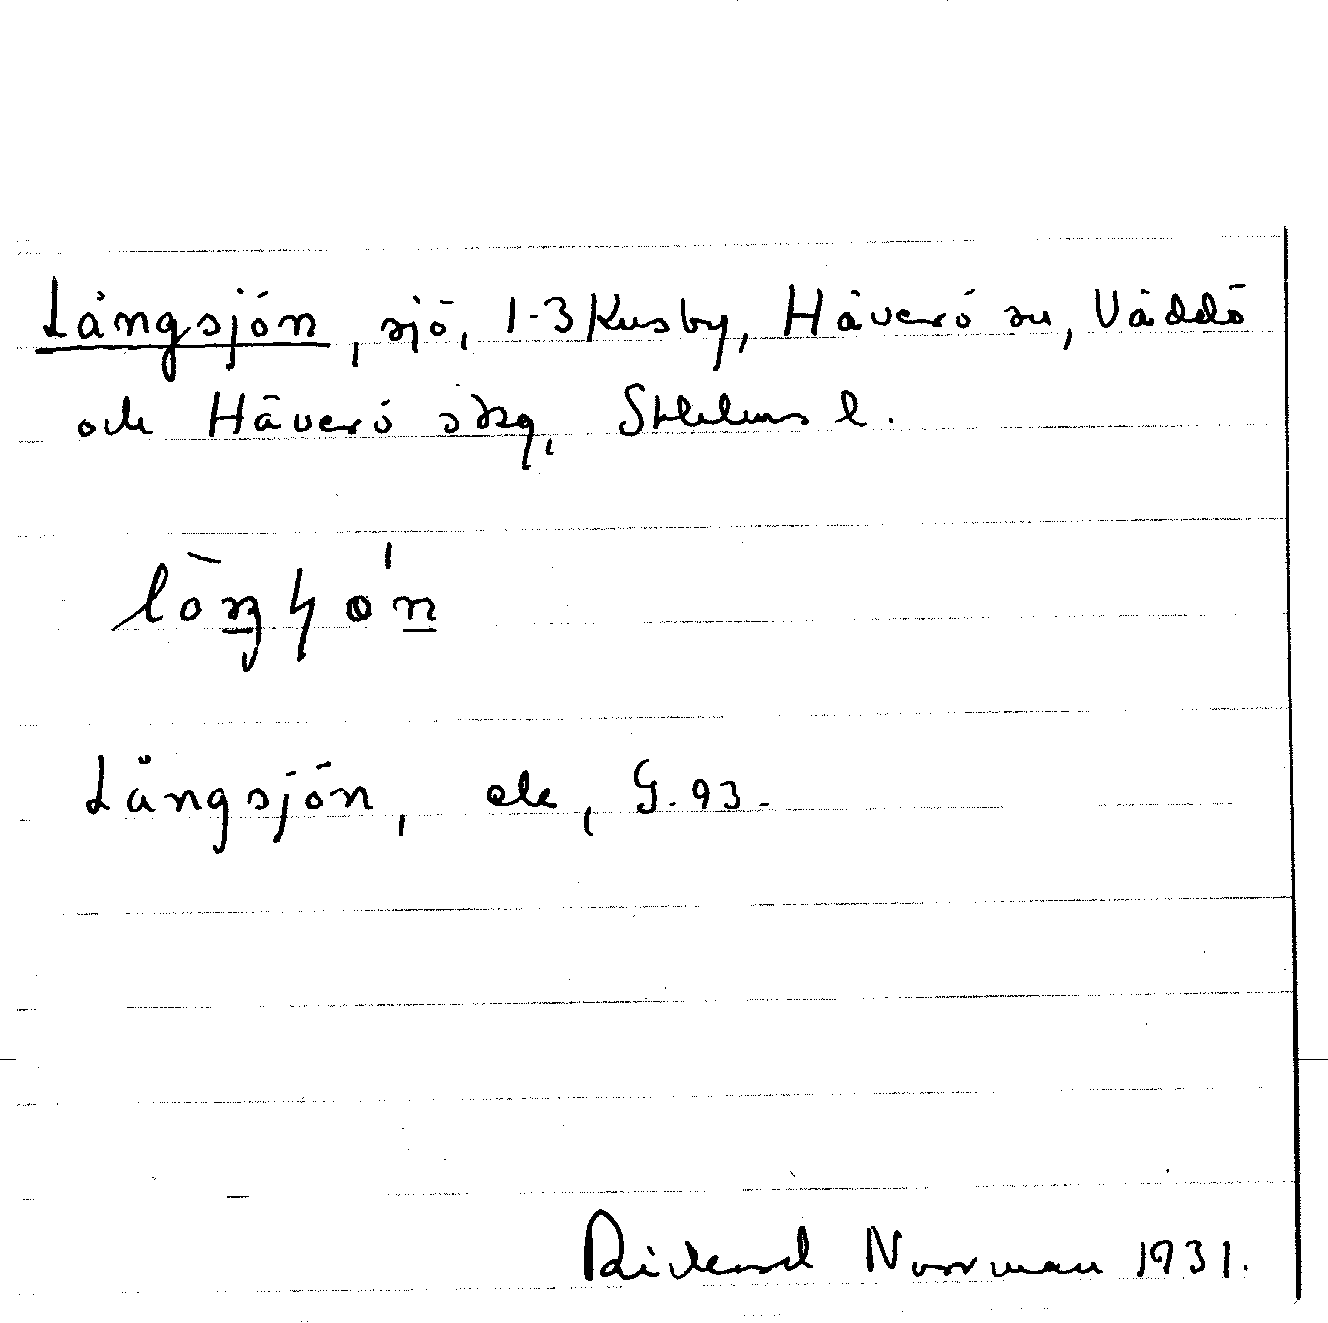 Långsjön, sjö, 1-3 Kusby, Häverö sn, Väddö
och Häverö skg, Sthlms l.
Långsjön, ek, G. 93.
Rickard Norrman 1931.